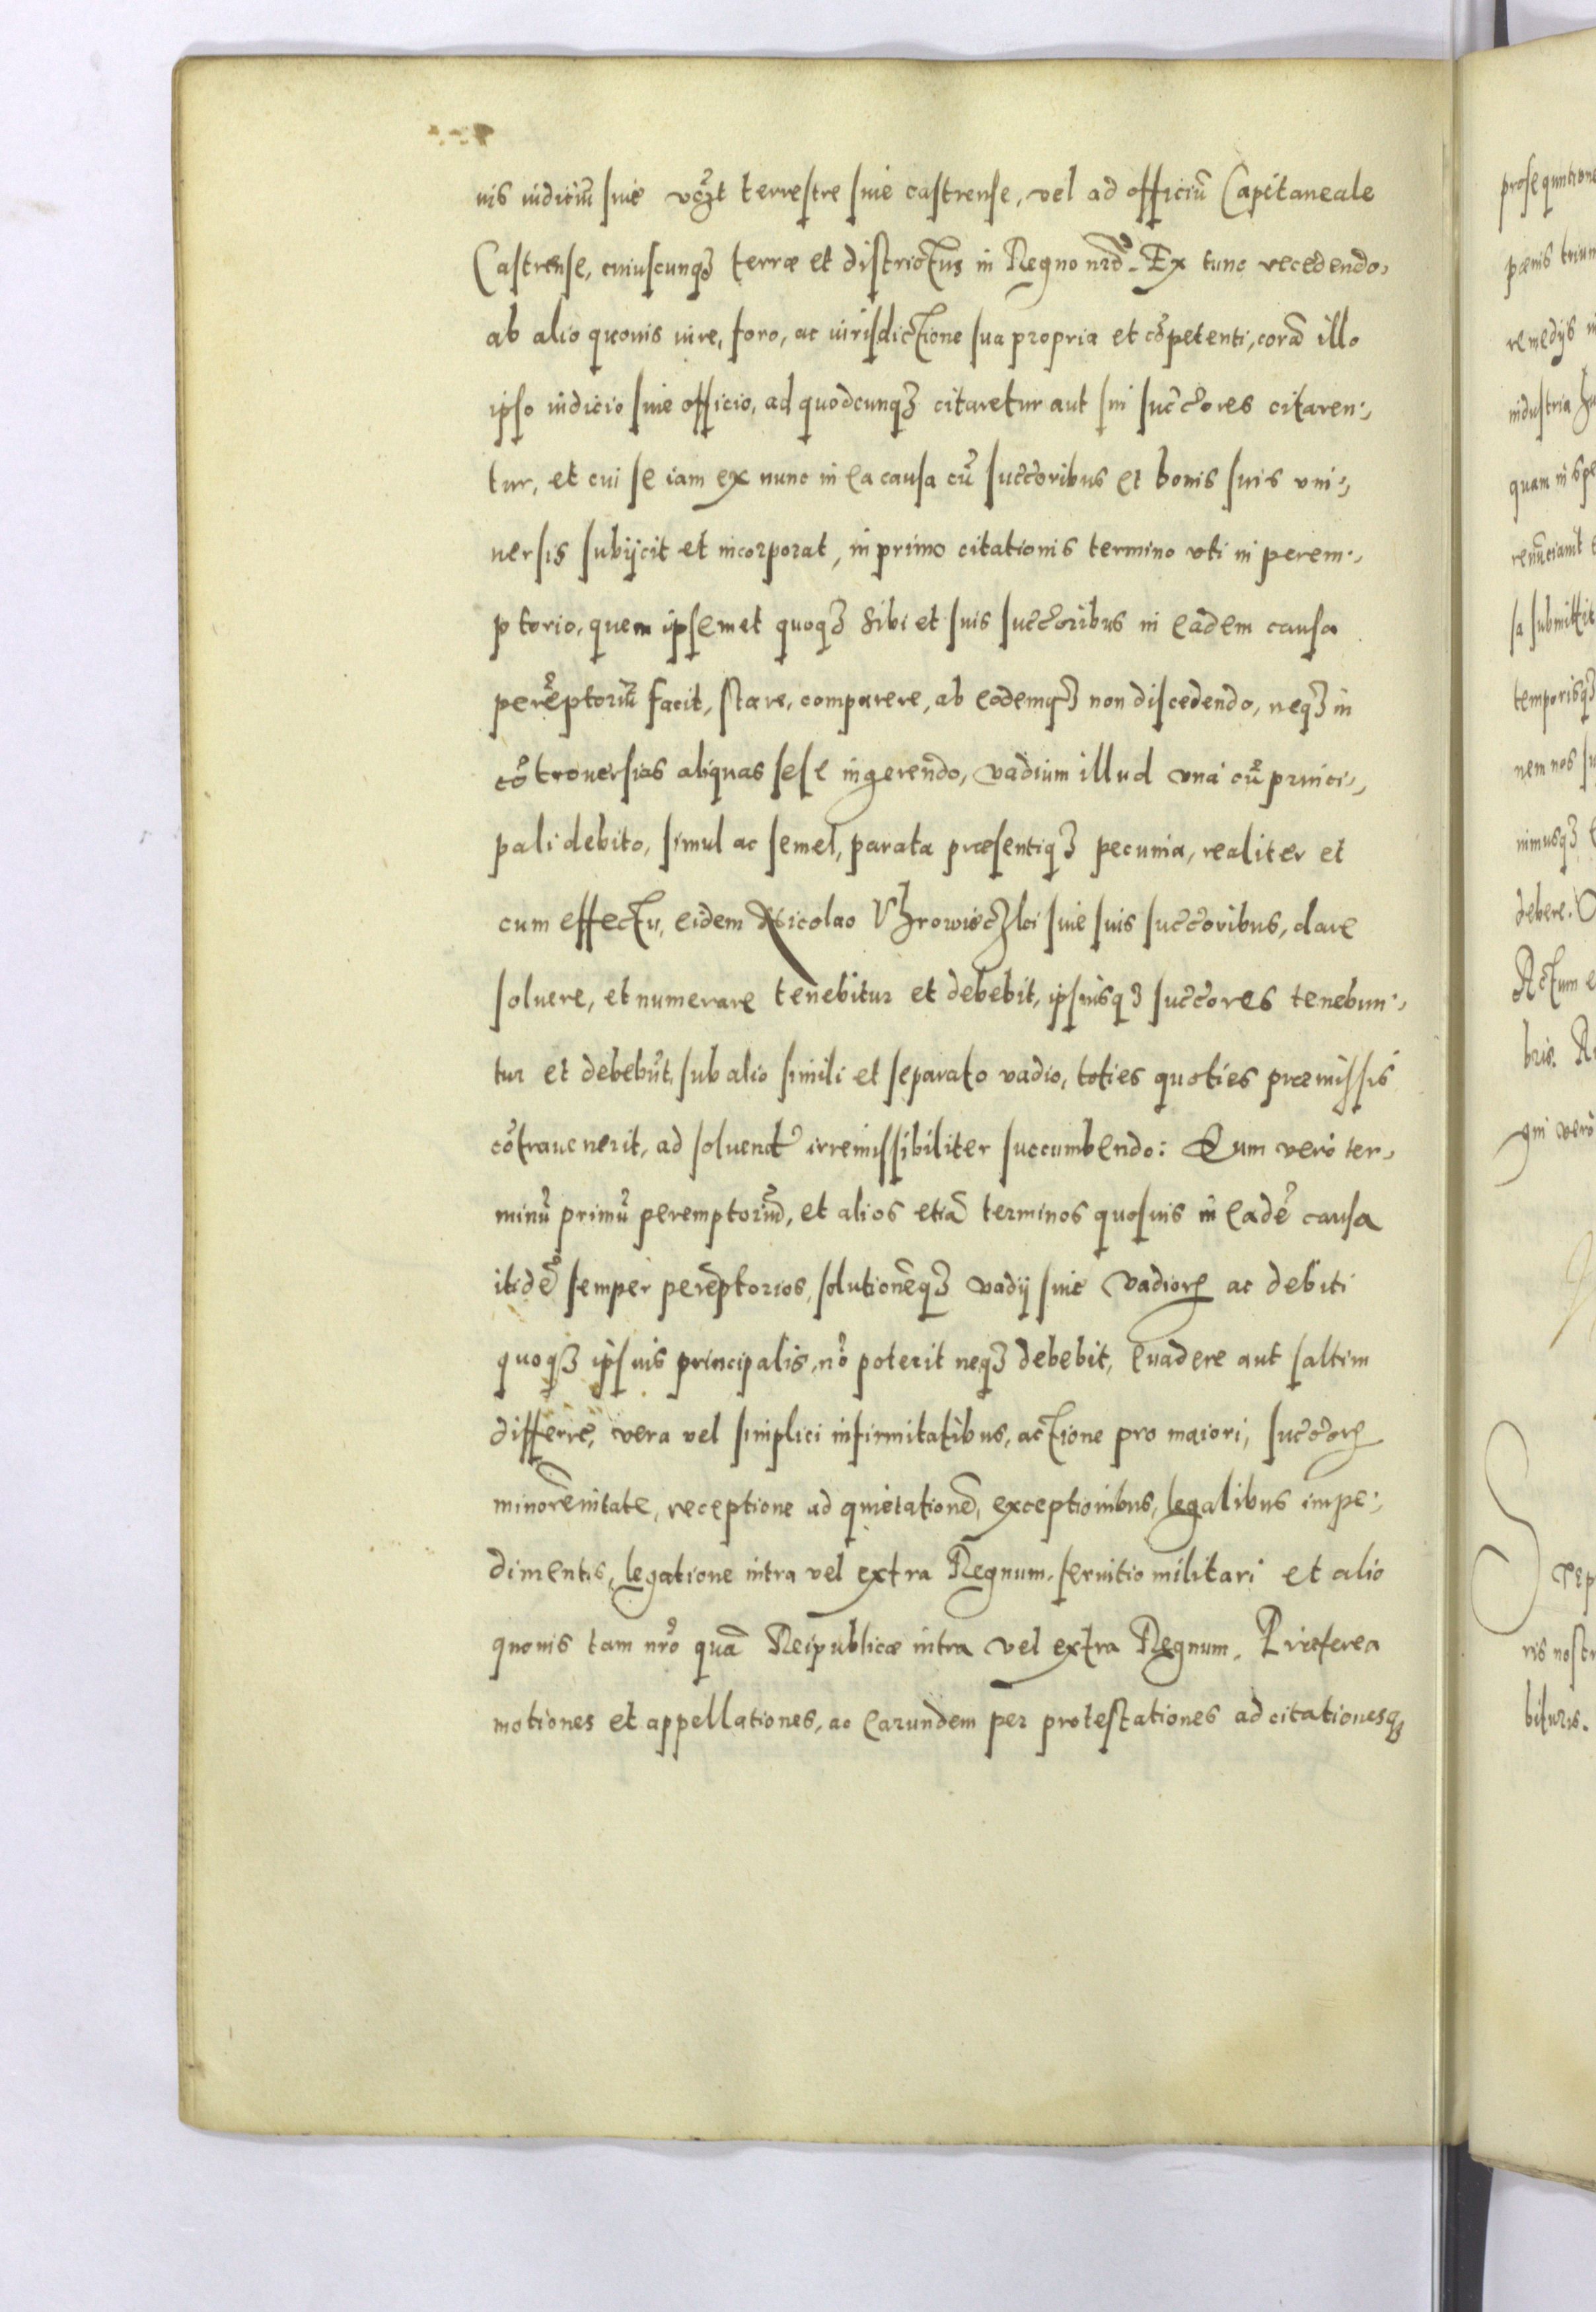 uis iudiciũ siue terrestre siue castrense, vel ad officiũ Capitaneale
Castrense, cuiuscunqȝ terræ et districtus in Regno nrõ. Ex tunc recedendo,
ab alio quouis iure, foro, ac iurisdictione sua propria et cõpetenti, corã illo
ipso iudicio siue officio, ad quodcunqȝ citaretur aut sui succ̃ores citaren:,
tur, et cui se iam ex nunc in ea causa cũ succ̃oribus et bonis suis vni:,
uersis subijcit et incorporat, in primo citationis termino vti in perem:,
ptorio, quem ipsemet quoqȝ sibi et suis succ̃oribus in eadem causa
perẽptoriũ facit, stare, comparere, ab eodemqȝ non discedendo, neqȝ in
cõtrouersias aliquas sese ingerendo, vadium illud vnà cũ princi:,
pali debito, simul ac semel, parata præsentiqȝ pecunia, realiter et
cum effectu, eidem Nicolao siue suis succ̃oribus, dare
soluere, et numerare tenebitur et debebit, ipsiusqȝ succ̃ores tenebun:,
tur et debebũt, sub alio simili et separato vadio, toties quoties præmissis
cõtrauenerit, ad soluend̃ irremissibiliter succumbendo: Quem verò ter:,
minũ primũ peremptoriũ, et alios etiã terminos quosuis in eadẽ causa
itidẽ semper perẽptorios, solutionẽqȝ vadij siue vadioꝝ ac debiti
quoqȝ ipsius principalis, nõ poterit neqȝ debebit, euadere aut saltim
differre, vera vel simplici infirmitatibus, actione pro maiori, succ̃oꝝ
minorẽnitate, receptione ad quietationẽ, exceptionibus, legalibus impe:,
dimentis, legatione intra vel extra Regnum, seruitio militari et alio
quouis tam nrõ quã Reipublicæ intra vel extra Regnum. Præterea
motiones et appellationes, ac earundem per protestationes ad citationesqȝ
prosequution
pænis trium
remedijs
industria
quam in spe
renũciauit
sa submittit
temporisqȝ
nem nos
nimusqȝ
debere.
Actum e
bris.
gni verò
rep
ris nostr
bituris.